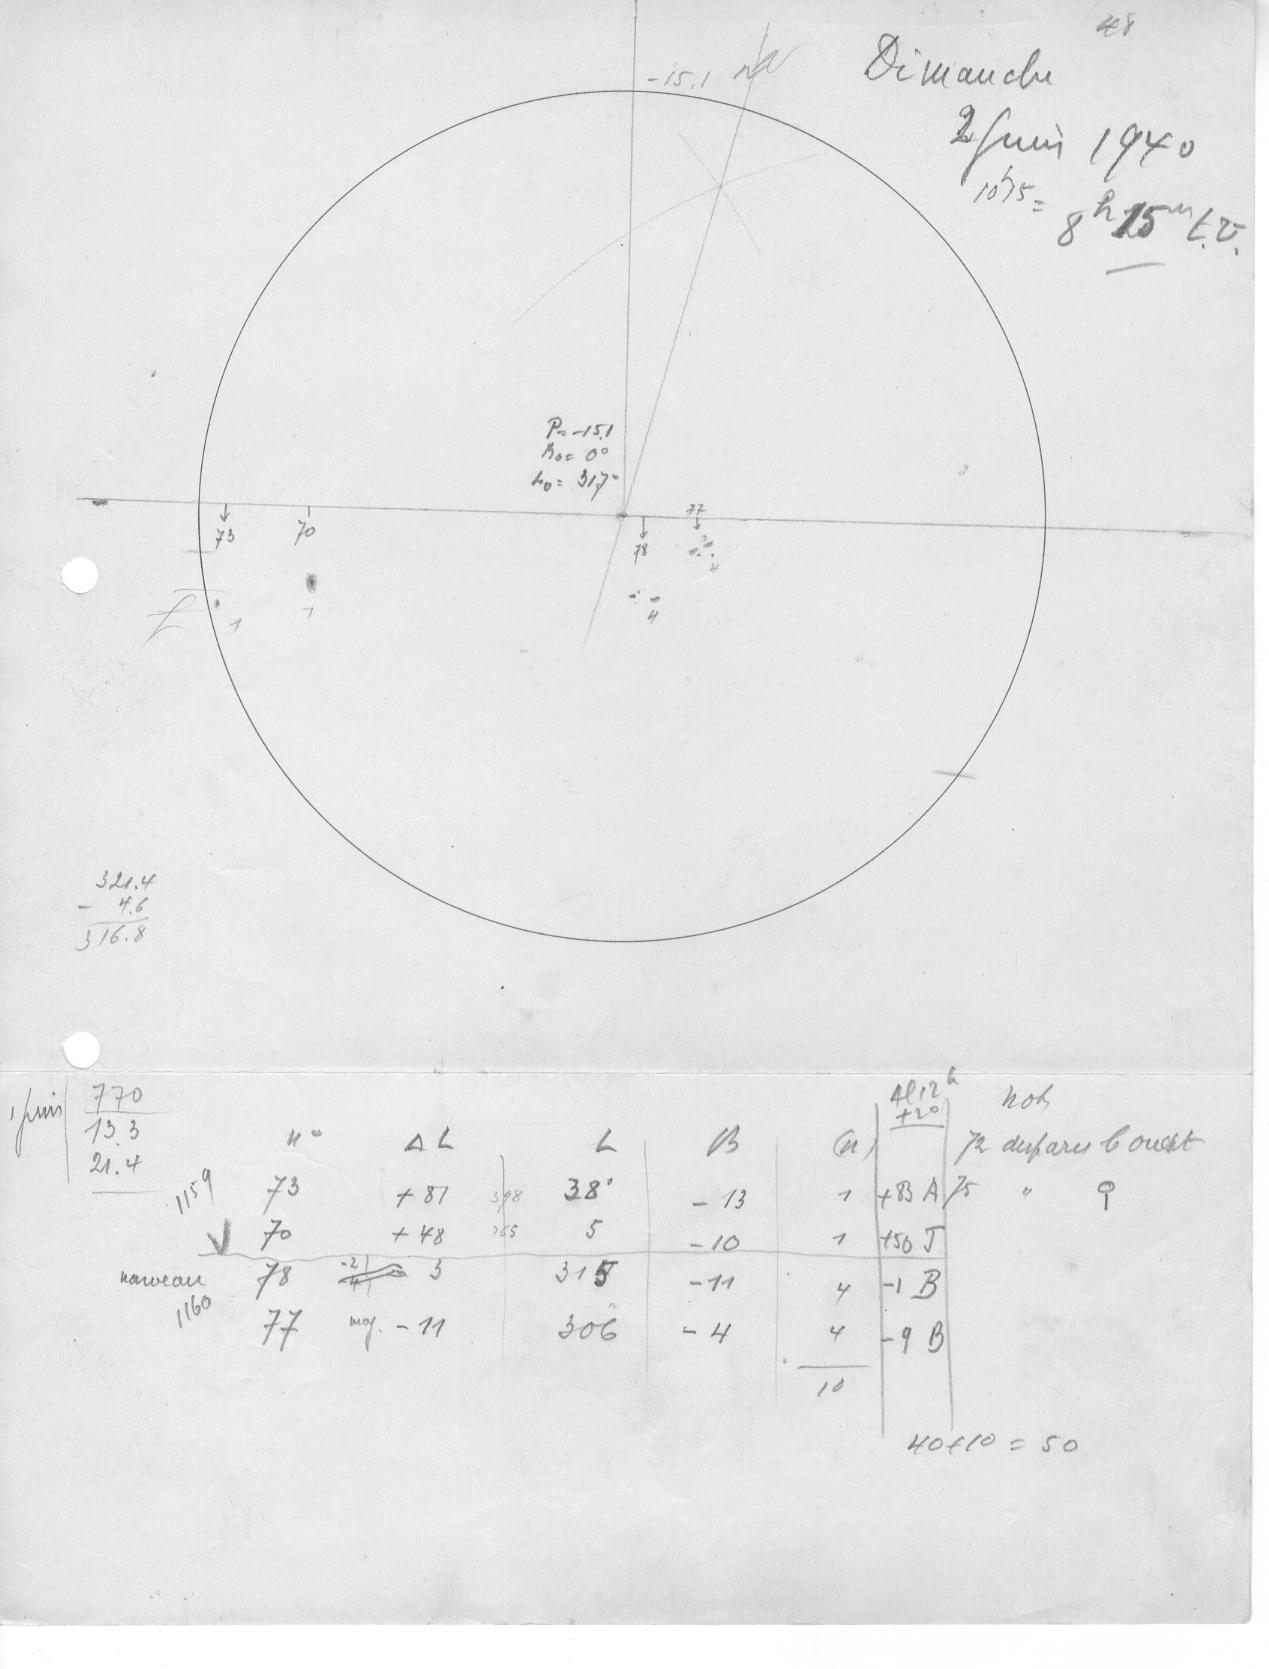 48
-15.1
Dimanche
2 Juin 1940
10h15 =
8h 15m t.u.
P = -15.1
B0 = 0°
L0 = 317°
73 70 78 77
4
1 1 4
321.4
- 4.6
316.8
1 juin 770
13.3
21.4
n° Δ L L B (n) A 12h +20 Nots
72 disparu b ouest
1159 73 +81 398 38° -13 1 +83 A 75 "
70 +48 365 5 -10 1 +50 J
nouveau 78 3 315 -11 4 -1 B
1160 77 moy. -11 306 -4 4 -9 B
10
40+10 = 50